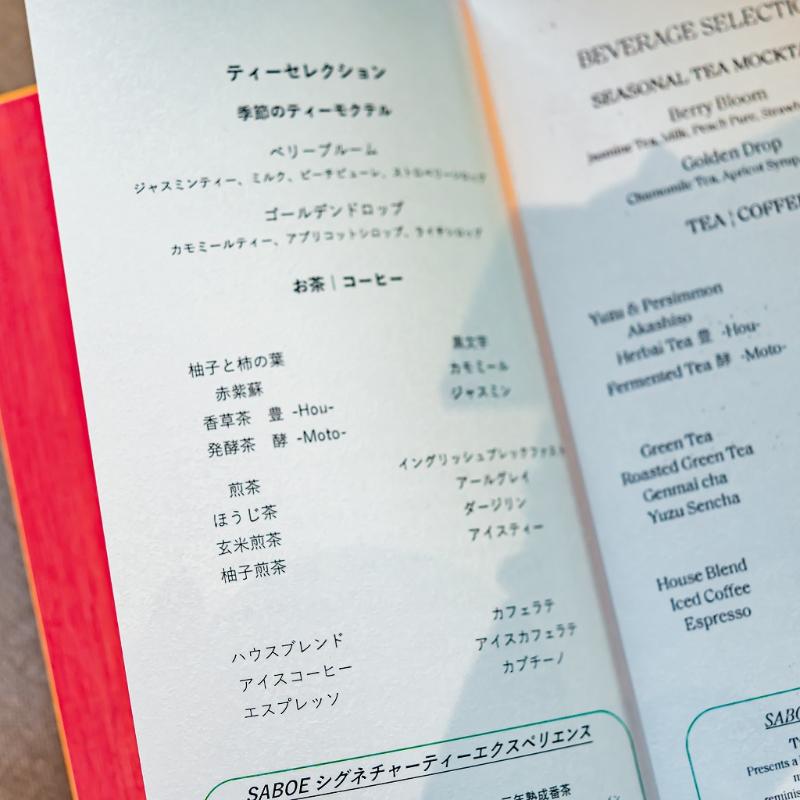 ティーセレクション
季節のティーモクテル
ベリーブルーム
ジャスミンティー、ミルク、ピーチピューレ、ストロベリーシロップ
ゴールデンドロップ
カモミールティー、アプリコットシロップ、
お茶｜コーヒー
柚子と柿の葉
赤紫蘇
香草茶 豊 -Hou-
発酵茶 酵 -Moto-
黒文字
カモミール
ジャスミン
煎茶
ほうじ茶
玄米煎茶
柚子煎茶
イングリッシュブレックファスト
アールグレイ
ダージリン
アイスティー
ハウスブレンド
アイスコーヒー
エスプレッソ
カフェラテ
アイスカフェラテ
カプチーノ
SABOE シグネチャーティーエクスペリエンス
年熟成番茶
BEVERAGE SELECTIO
SEASONAL TEA MOCKTA
Berry Bloom
Jasmine Tea, Milk, Peach Pure, Strawb
Golden Drop
Chamomile Tea, Apricot Syrup,
TEA ¦ COFFEE
Yuzu & Persimmon
Akashiso
Herbal Tea 豊 -Hou-
Fermented Tea 酵 -Moto-
Green Tea
Roasted Green Tea
Genmai cha
Yuzu Sencha
House Blend
Iced Coffee
Espresso
SABO
Presents a
reminis